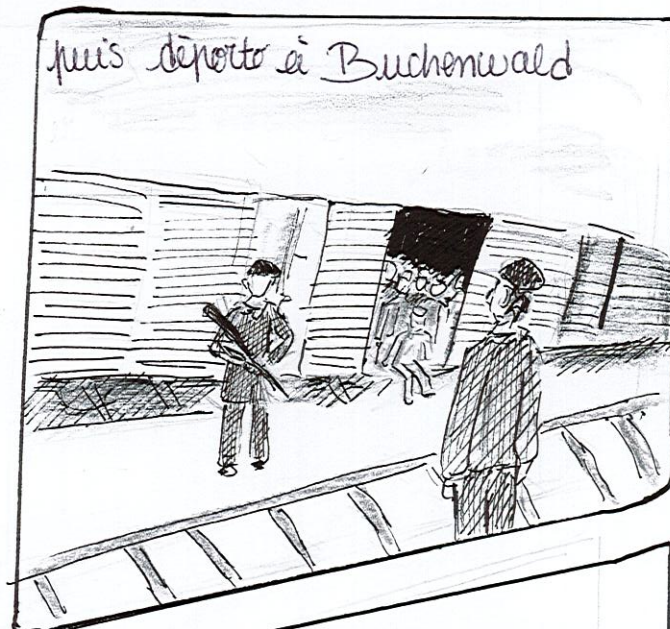 puis déporto à Buchenwald